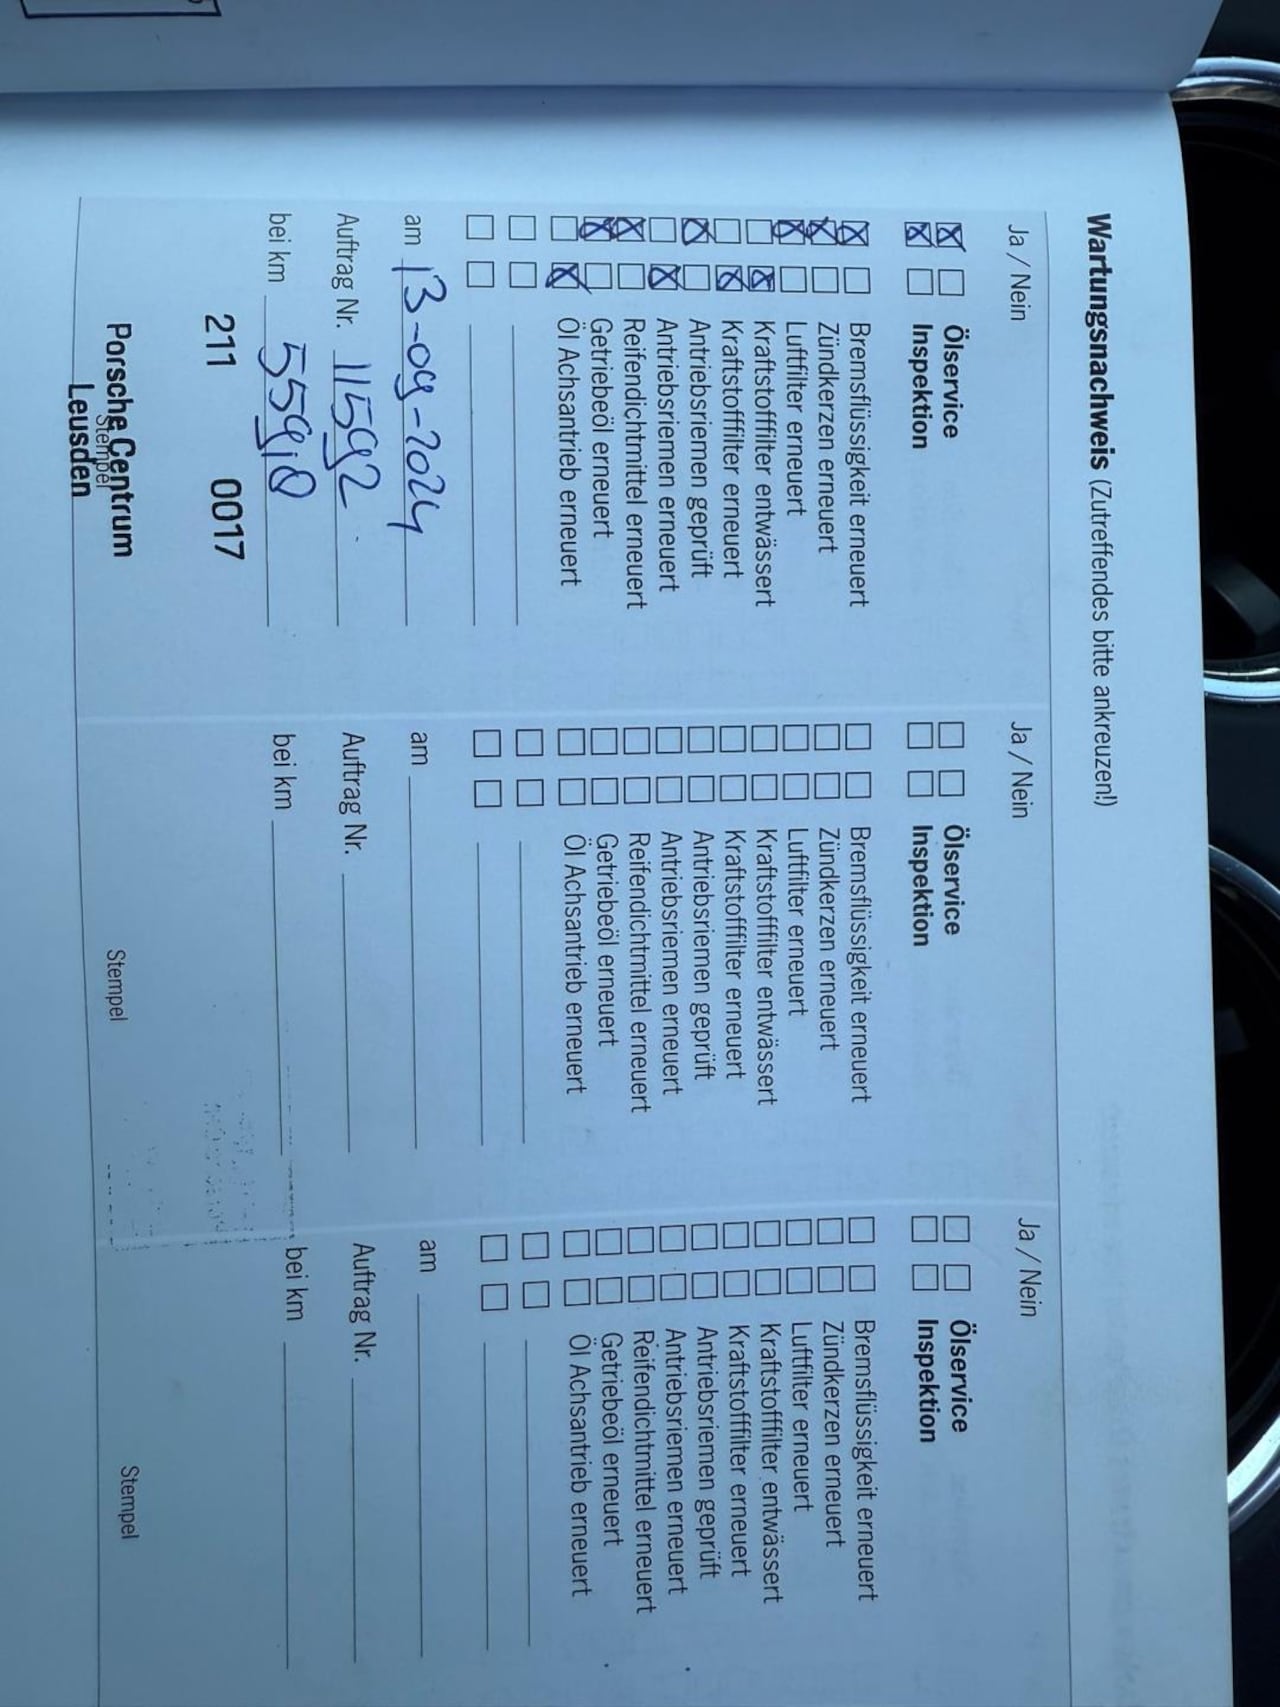 Wartungsnachweis (Zutreffendes bitte ankreuzen!)
Ja / Nein
Ölservice
Inspektion
Bremsflüssigkeit erneuert
Zündkerzen erneuert
Luftfilter erneuert
Kraftstofffilter entwässert
Kraftstofffilter erneuert
Antriebsriemen geprüft
Antriebsriemen erneuert
Reifendichtmittel erneuert
Getriebeöl erneuert
Öl Achsantrieb erneuert
am 13-09-2024
Auftrag Nr. 11592
bei km 55910
211 0017
Porsche Centrum
Stempel
Leusden
Ja / Nein
Ölservice
Inspektion
Bremsflüssigkeit erneuert
Zündkerzen erneuert
Luftfilter erneuert
Kraftstofffilter entwässert
Kraftstofffilter erneuert
Antriebsriemen geprüft
Antriebsriemen erneuert
Reifendichtmittel erneuert
Getriebeöl erneuert
Öl Achsantrieb erneuert
am
Auftrag Nr.
bei km
Stempel
Ja / Nein
Ölservice
Inspektion
Bremsflüssigkeit erneuert
Zündkerzen erneuert
Luftfilter erneuert
Kraftstofffilter entwässert
Kraftstofffilter erneuert
Antriebsriemen geprüft
Antriebsriemen erneuert
Reifendichtmittel erneuert
Getriebeöl erneuert
Öl Achsantrieb erneuert
am
Auftrag Nr.
bei km
Stempel